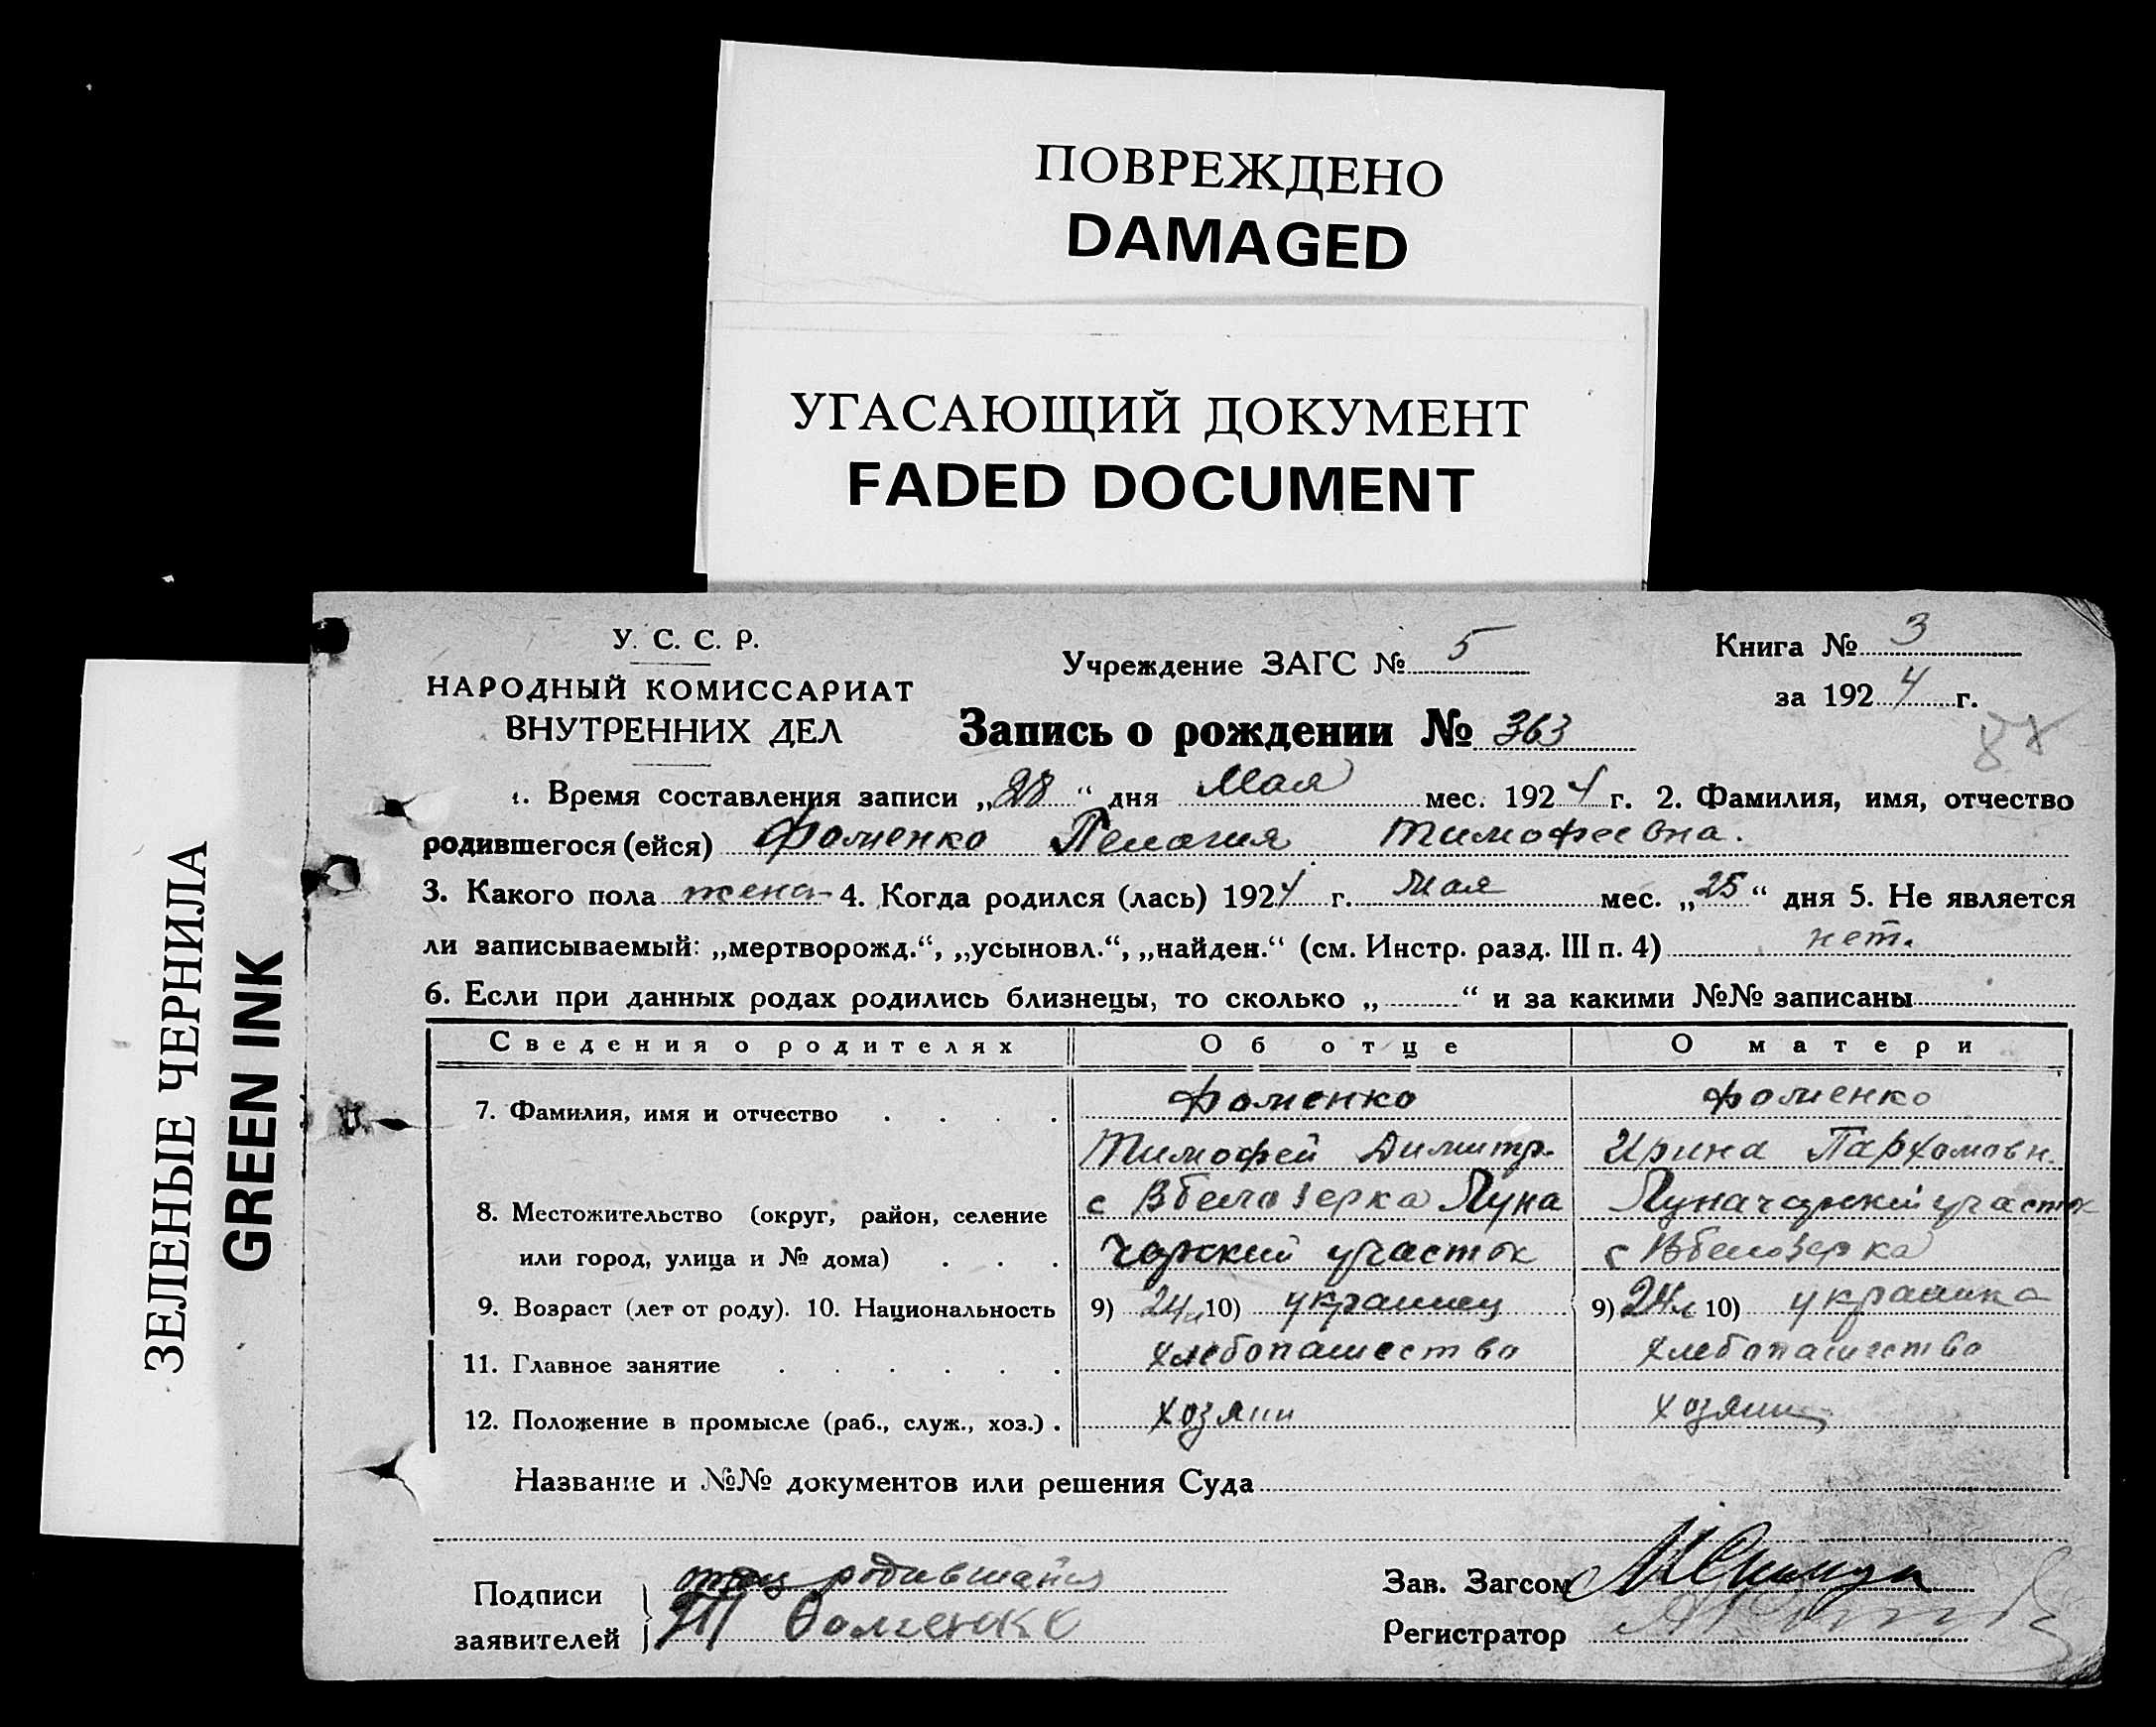 ПОВРЕЖДЕНО
DAMAGED
УГАСАЮЩИЙ ДОКУМЕНТ
FADED DOCUMENT
ЗЕЛЕНЫЕ ЧЕРНИЛА
GREEN INK
У. С. С. Р.
НАРОДНЫЙ КОМИССАРИАТ
ВНУТРЕННИХ ДЕЛ
Учреждение ЗАГС № 5
Книга № 3
за 1924 г.
Запись о рождении № 363
1. Время составления записи „28“ дня Мая мес. 1924 г. 2. Фамилия, имя, отчество
родившегося (ейся) Фоменко Пелагия Тимофеевна.
3. Какого пола жена- 4. Когда родился (лась) 1924 г. Мая мес. „25“ дня 5. Не является
ли записываемый: „мертворожд.“, „усыновл.“, „найден.“ (см. Инстр. разд. III п. 4) нет.
6. Если при данных родах родились близнецы, то сколько „ “ и за какими №№ записаны
Сведения о родителях Об отце О матери
7. Фамилия, имя и отчество Фоменко Фоменко
Тимофей Димитр. Ирина Пархомовн.
с Вбелозерка Луна Луначарский участок
8. Местожительство (округ, район, селение
или город, улица и № дома) чарский участок с Вбелозерка
9. Возраст (лет от роду). 10. Национальность 9) 24л 10) украинец 9) 24л 10) украинка
11. Главное занятие хлебопашество хлебопашество
12. Положение в промысле (раб., служ., хоз.) хозяин хозяин
Название и №№ документов или решения Суда
Подписи отец родившейся
заявителей Т Фоменко
Зав. Загсом
Регистратор